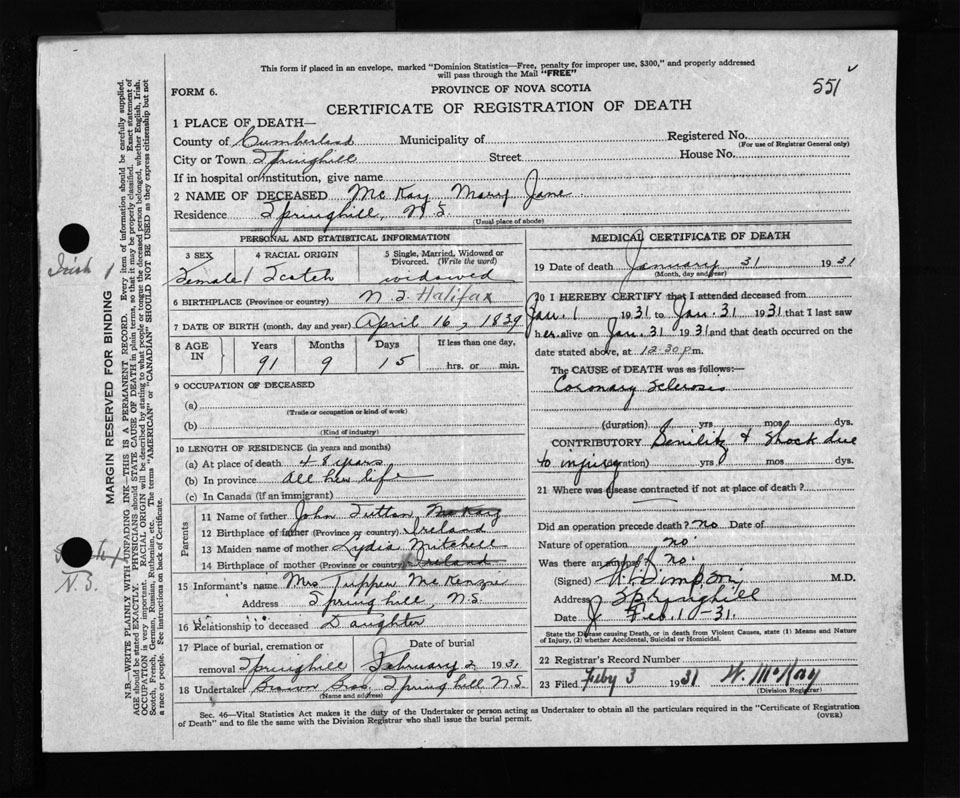 This form if placed in an envelope, marked "Dominion Statistics—Free, penalty for improper use, $300," and properly addressed
will pass through the Mail "FREE"
FORM 6.
PROVINCE OF NOVA SCOTIA
551
CERTIFICATE OF REGISTRATION OF DEATH
1 PLACE OF DEATH—
County of Cumberland Municipality of Registered No.
(For use of Registrar General only)
City or Town Springhill Street House No.
If in hospital or institution, give name
2 NAME OF DECEASED McKay Mary Jane
Residence Springhill, N.S.
(Usual place of abode)
PERSONAL AND STATISTICAL INFORMATION
3 SEX 4 RACIAL ORIGIN 5 Single, Married, Widowed or
Divorced. (Write the word)
Female Scotch widowed
6 BIRTHPLACE (Province or country) N.S. Halifax
7 DATE OF BIRTH (month, day and year) April 16, 1839
8 AGE IN Years Months Days If less than one day,
91 9 15 hrs. or min.
9 OCCUPATION OF DECEASED
(a)
(Trade or occupation or kind of work)
(b)
(Kind of industry)
10 LENGTH OF RESIDENCE (in years and months)
(a) At place of death 48 years
(b) In province All her life
(c) In Canada (if an immigrant)
Parents
11 Name of father John Tutton McKay
12 Birthplace of father (Province or country) Ireland
13 Maiden name of mother Lydia Mitchell
14 Birthplace of mother (Province or country) Ireland
15 Informant's name Mrs Tupper McKenzie
Address Springhill, N.S.
16 Relationship to deceased Daughter
17 Place of burial, cremation or Date of burial
removal Springhill February 2 1931
18 Undertaker Brown Bros. Springhill N.S.
(Name and address)
MEDICAL CERTIFICATE OF DEATH
19 Date of death January 31 1931
(Month, day and year)
20 I HEREBY CERTIFY that I attended deceased from
Jan. 1 1931 to Jan. 31 1931 that I last saw
her alive on Jan. 31 1931 and that death occurred on the
date stated above, at 12.30 p.m.
The CAUSE of DEATH was as follows:—
Coronary Sclerosis
(duration) yrs mos. dys.
CONTRIBUTORY Senility & Shock due
to injury (duration) yrs mos. dys.
21 Where was disease contracted if not at place of death?
Did an operation precede death? no Date of
Nature of operation no
Was there an autopsy? no.
(Signed) Simpson M.D.
Address Springhill
Date Feb. 1-31.
State the Disease causing Death, or in death from Violent Causes, state (1) Means and Nature
of Injury, (2) whether Accidental, Suicidal or Homicidal.
22 Registrar's Record Number
23 Filed Feby 3 1931 W. McKay
(Division Registrar)
Sec. 46—Vital Statistics Act makes it the duty of the Undertaker or person acting as Undertaker to obtain all the particulars required in the "Certificate of Registration
of Death" and to file the same with the Division Registrar who shall issue the burial permit.
(OVER)
Irish
N.S.
MARGIN RESERVED FOR BINDING
N.B.—WRITE PLAINLY WITH UNFADING INK—THIS IS A PERMANENT RECORD. Every item of information should be carefully supplied.
AGE should be stated EXACTLY. PHYSICIANS should STATE CAUSE OF DEATH in plain terms, so that it may be properly classified. Exact statement of
OCCUPATION is very important. RACIAL ORIGIN will be described by stating to what people or tongue the deceased person belonged, whether English, Irish,
Scotch, French, German, Russian, Ruthenian, etc. The terms "AMERICAN" or "CANADIAN" SHOULD NOT BE USED as they express citizenship but not
a race or people. See instructions on back of Certificate.